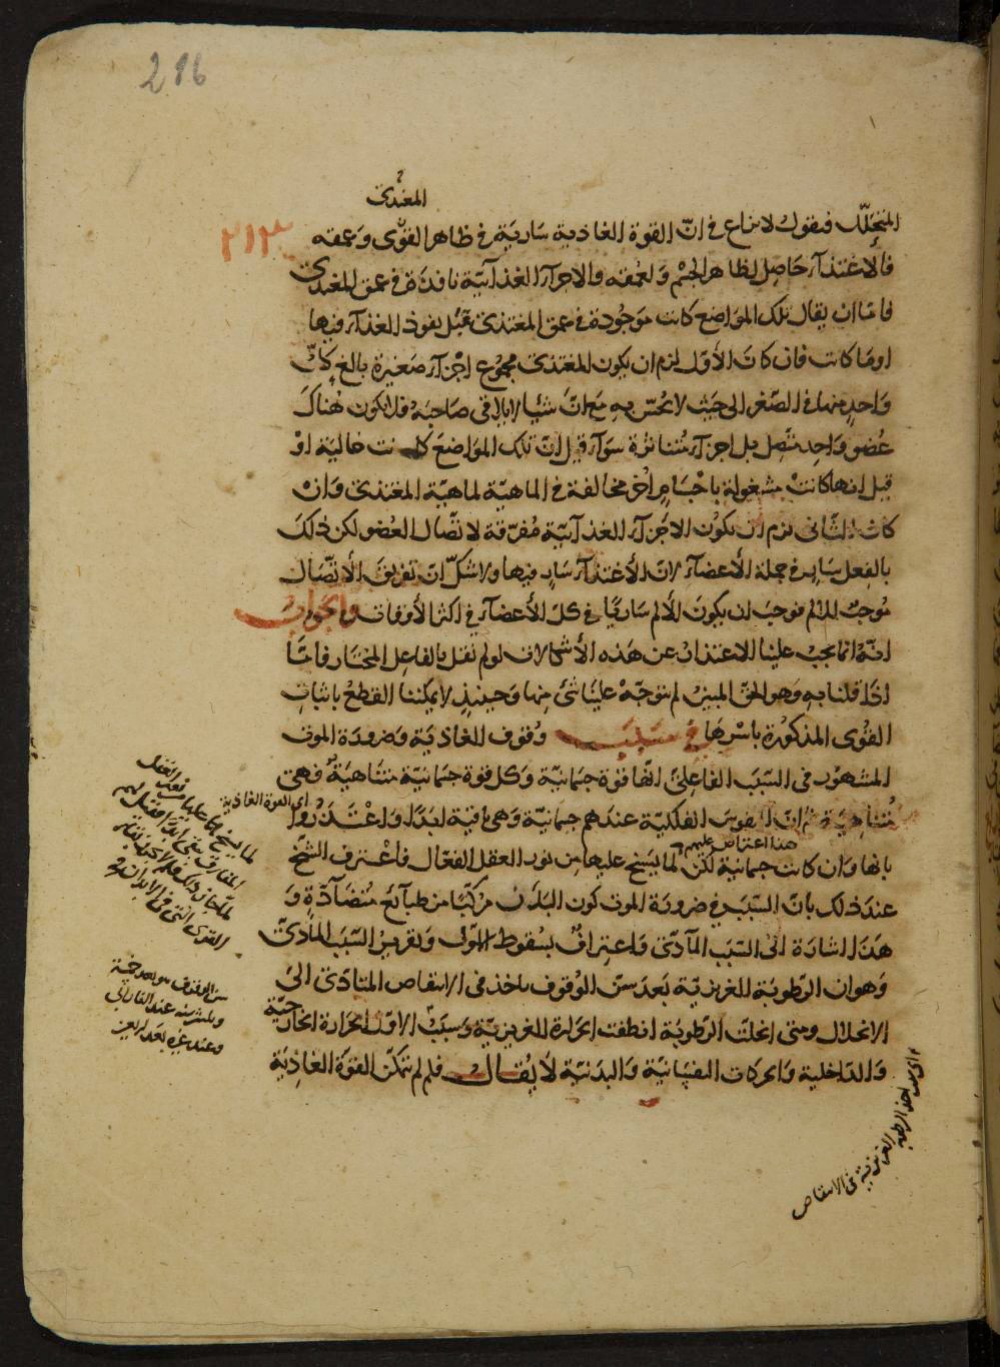 216
٢١٣
المغتذي
المتحلل فنقول لا نزاع في ان القوة الغاذية سارية في ظاهر القوى وعمقه
فالاغتذآء حاصل لظاهر الجسم ولعمقه والاجزآء الغذآئية نافذة في عمق المغتذي
فاما ان يقال تلك المواضع كانت موجودة في عمق المغتذي قبل نفوذ الغذآء فيها
او ما كانت فان كان الأول لزم ان يكون المغتذي مجموع اجزآء صغيرة بالغ كل
واحد منها في الصغر الى حيث لا يحس به مع ان شيئا لا يلاقي صاحبه فلا يكون هناك
عضو واحد متصل بل اجزآء متناثرة سوآء قيل ان تلك المواضع كانت خالية او
قيل انها كانت مشغولة باجسام اخر مخالفة في الماهية لماهية المغتذي وان
كان الثاني لزم ان يكون الاجزآء الغذآئية مفرقة لاتصال العضو لكن ذلك
بالفعل ساير في جملة الأعضآء لان الأغتذآء سار فيها ولا شك ان تفريق الأتصال
موجب للالم فوجب ان يكون الألم ساريا في كل الأعضآء في اكثر الأوقات والجواب
انه انما يجب علينا الاعتذار عن هذه الأشكالات لو لم نقل بالفاعل المختار فاما
اذا قلنا به وهو الحق المبين لم يتوجه علينا شئ منها وحينئذ لا يمكننا القطع باثبات
القوى المذكورة باسرها في سبب وقوف الغاذية وضرورة الموت
المشهور في السبب الفاعلي انها قوة جسمانية وكل قوة جسمانية متناهية فهى
اى القوة الغاذية
متناهية ثم ان النفوس الفلكية عندهم جسمانية وهى باقية ابدا واعتذروا
هذا اعتراض عليهم
بانها وان كانت جسمانية لكن لما يسنح عليها من نور العقل الفعال فاعترف الشيخ
عند ذلك بان السبب في ضرورة الموت كون البدن مركبا من طبآئع متضآدة و
هذا اشارة الى السبب المآدي واعتراف بسقوط الاول وتقرير السبب المادي
وهو ان الرطوبة الغريزية بعد سن الوقوف ياخذ في الانتقاص المتادى الى
الانحلال ومتى انحلت الرطوبة انطفت الحرارة الغريزية وسبب الاول الحرارة الخارجية
والداخلية والحركات النفسانية والبدنية لا يقال فلم لم تتمكن القوة الغاذية
لما يسنح عليها من العقل
المفارق
سن الوقوف
وعند غيره بعد اربعين
اى سبب اخذ الرطوبة الغريزية في الانتقاص